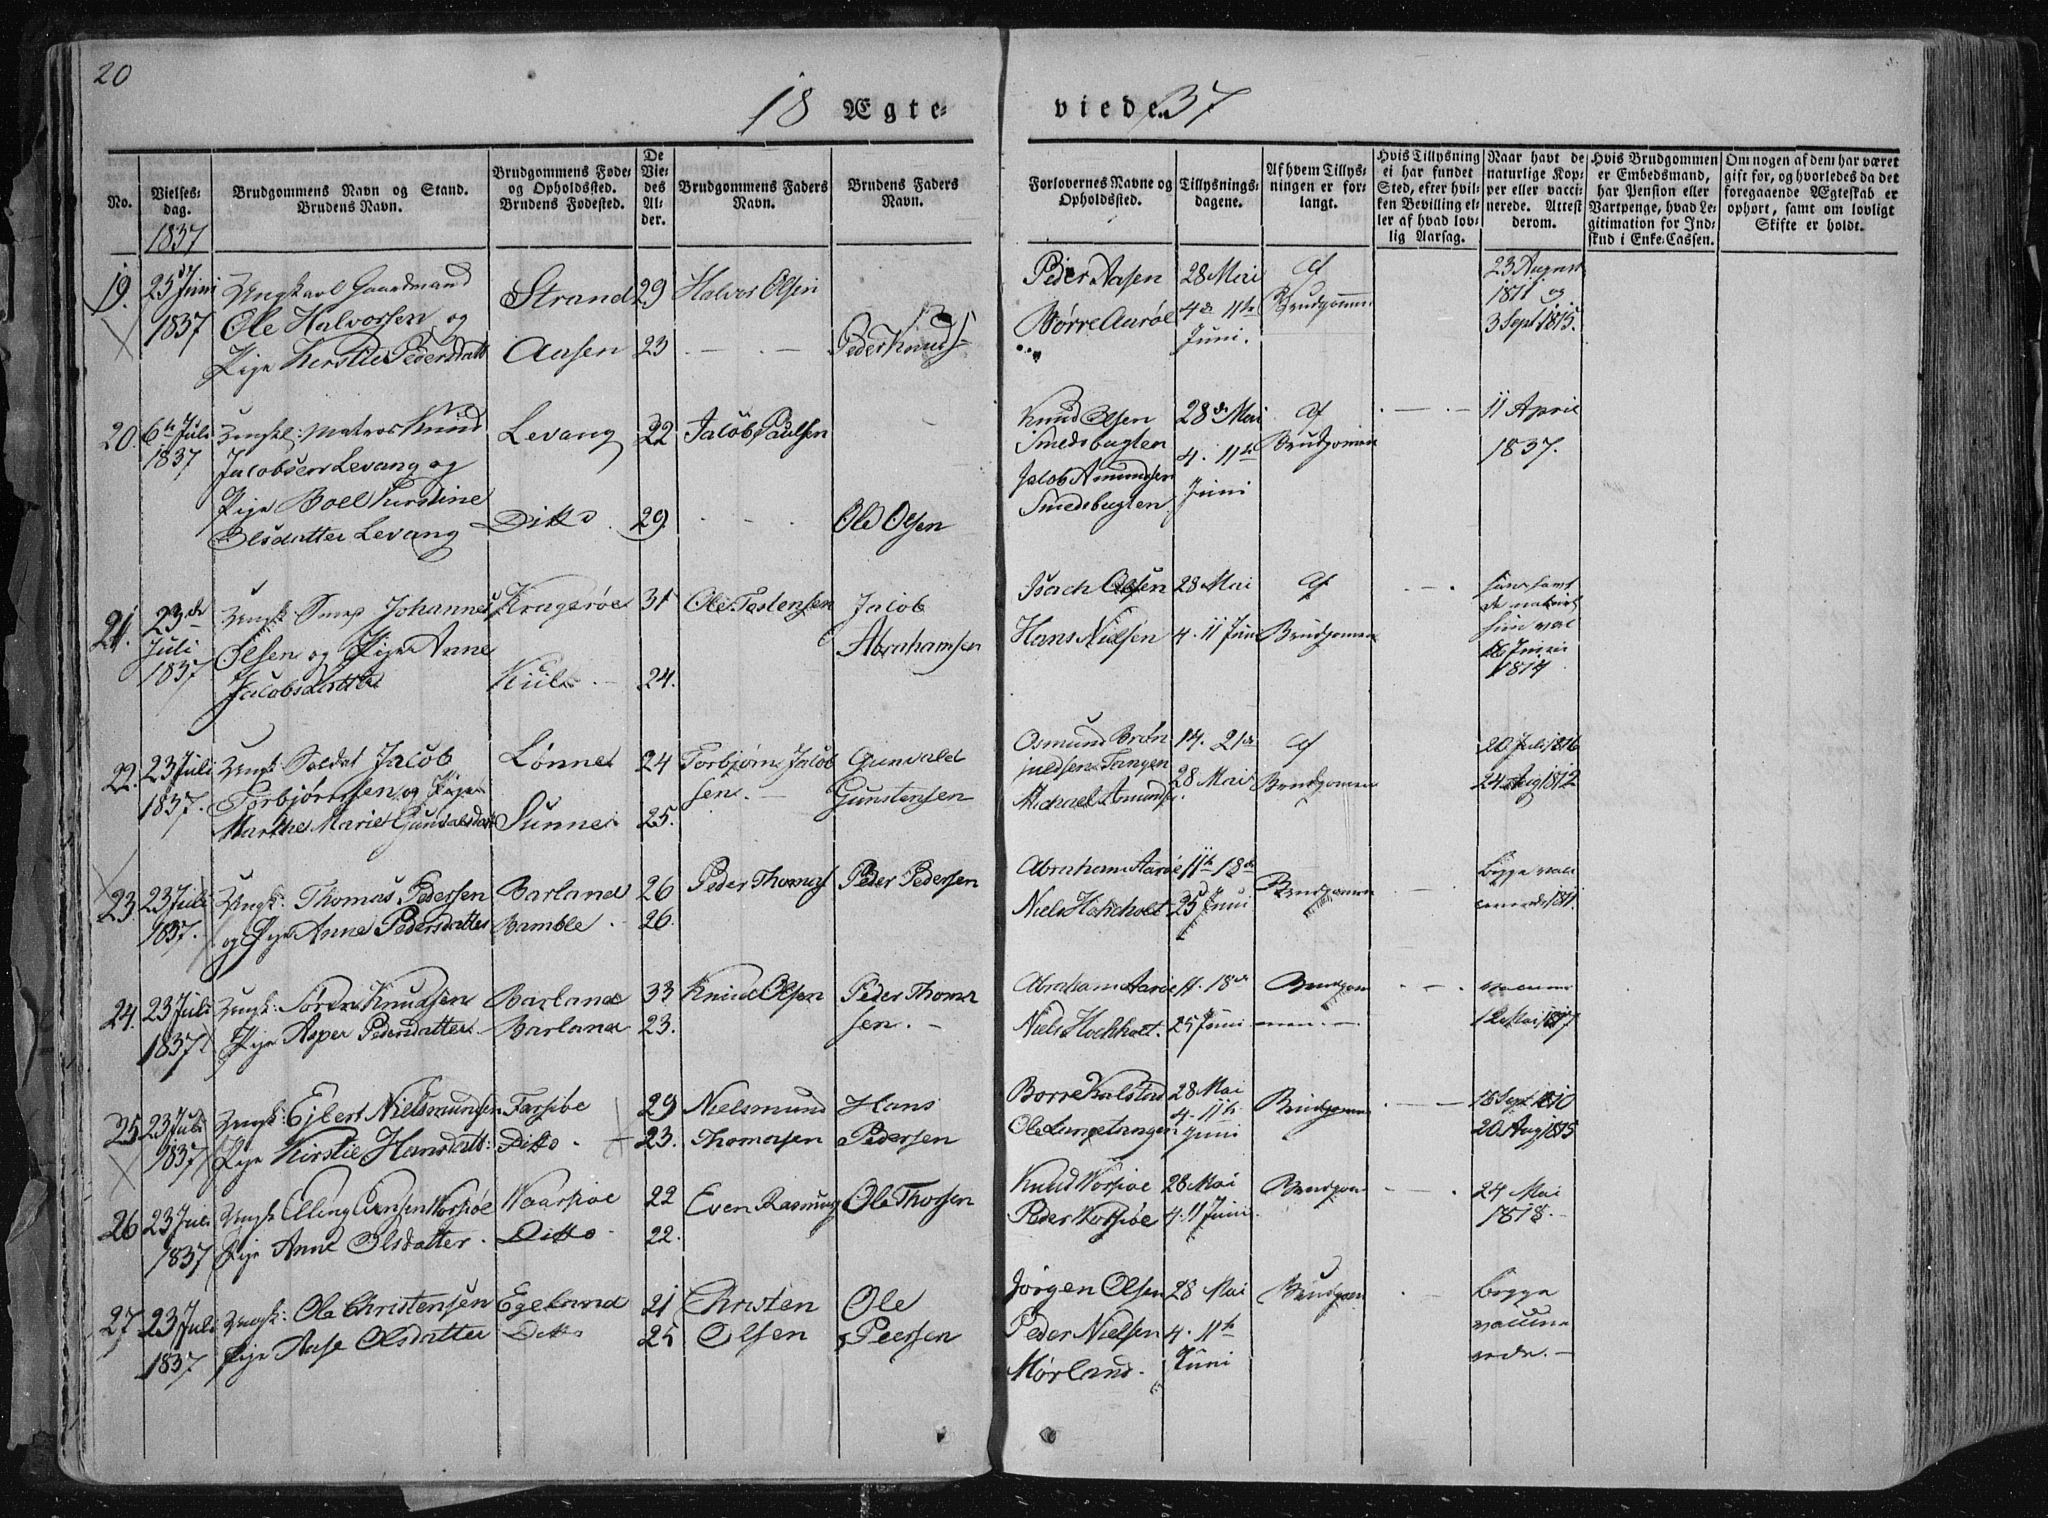 20
18 Ægte-
viede. 37
No.
Vielses-
dag.
1837
Brudgommens Navn og Stand.
Brudens Navn.
Brudgommens Føde-
og Opholdssted.
Brudens Fødested.
De
Vie-
des
Al-
der.
Brudgommens Faders
Navn.
Brudens Faders
Navn.
Forlovernes Navne og
Opholdssted.
Tillysnings-
dagene.
Af hvem Tillys-
ningen er for-
langt.
Hvis Tillysning
ei har fundet
Sted, efter hvil-
ken Bevilling el-
ler af hvad lov-
lig Aarsag.
Naar havt de
naturlige Kop-
per eller vacci-
nerede. Attest
derom.
Hvis Brudgommen
er Embedsmand,
har Pension eller
Vartpenge, hvad Le-
gitimation for Ind-
skud i Enke-Cassen.
Om nogen af dem har været
gift før, og hvorledes da det
foregaaende Ægteskab er
ophørt, samt om lovligt
Skifte er holdt.
19. 25 Juni
1837
Ungkarl Gaardmand
Ole Halvorsen og
Pige Kirstie Pedersdatt
Strand 29 Halvor Olsen
Aasen 23 — — Peder Knuds
Peder Aasen
Børre Aarøe
28 Mai
4de 11te
Juni.
Af
Brudgommen
23 August
1811 og
3 Sept 1815.
20. 6te Juli
1837
Ungkl: Matros Knud
Jacobsen Levang og
Pige Boel Kirstine
Olsdatter Levang
Levang 32 Jacob Paulsen
Ditto 29 Ole Olsen
Knud Olsen
Smedsbugten
Jacob Amundsen
Smedsbugten
28de Mai
4. 11te
Juni
Af
Brudgommen
11 April
1837.
21. 23de
Juli
1837
Ungk: Johannes
Olsen og Pige Anne
Jacobsdatter
Kragerøe 31 Ole Tostensen
Jacob
Abrahamsen
Kiil 24.
Isach Olsen
Hans Nielsen
28 Mai
4. 11 Juni
Af
Brudgommen
Juni
1814
22. 23 Juli
1837.
Ungk: Soldat Jacob
Torbjørnsen og Pige
Marthe Marie Gunvalsdatt
Lønne 24 Torbjørn Jacob
sen. —
Gunvald
Gunstensen
Sunne 25.
Osmund Brøn
julfsen Tangen
Michael Amunds.
14. 21de
28 Mai
Af
Brudgommen
20 Juli 1816
24 Aug 1812
23 23 Juli
1837.
Ungk: Thomas Pedersen
og Pige Anne Pedersdatter
Barland 26 Peder Thomas Peder Pedersen
Bamble. 26.
Abraham Aarøe
Niels Hochholt
11te 18de
25 Juni
Brudgommen
begge vac
1811.
24. 23 Juli
1837
Ungk: Søren Knudsen
Pige Asper Pedersdatter
Barland 33 Knud Olsen Peder Thoma
sen. —
Barland 23.
Abraham Aarøe
Niels Hochholt.
11. 18de
25 Juni
Brudgom
men. —
12 Mai 1817
25 23 Juli
1837
Ungk: Ejlert Nielsmundsen
Pige Kirstie Hansdatt:
Farsiøe 29 Nielsmund Hans
Ditto. 23. Thomasen Pedersen
Borre Kalstad
Ole Langetangen
28 Mai
4. 11te
Juni
Brudgommen
16 Sept 1810
20 Aug 1815
26 23 Juli
1837
Ungk: Elling Evensen Vorsiøe
Pige Anne Olsdatter.
Vaarsiøe 22 Even Rasmus Ole Thorsen
Ditto. 22.
Knud Vorsiøe
Peder Vorsiøe
28 Mai
4. 11 Juni
Brudgom
24 Mai
1818.
27. 23 Juli
1837
Ungk: Ole Christensen
Pige Aase Olsdatter
Egeland 21 Christen Ole
Ditto 25 Olsen Peersen
Jørgen Olsen
Peder Nielsen
Mørland.
28 Mai
4. 11te
Juni
Brudgom
begge
vaccine
rede. —